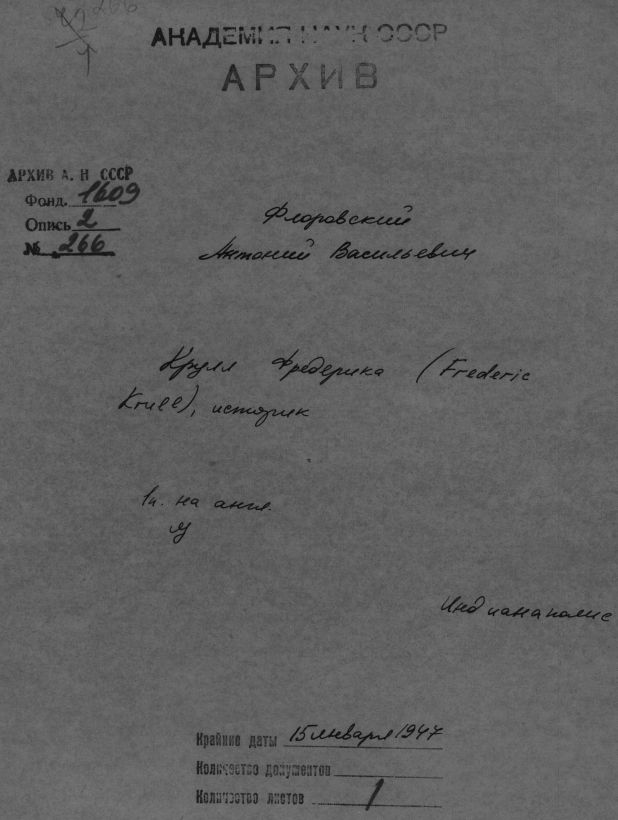 266
АКАДЕМИЯ НАУК СССР
АРХИВ
АРХИВ А. Н СССР
Фонд. 1609
Опись 2
№ 266
Флоровский
Антоний Васильевич
Крулл Фредерика (Frederic
Krull), историк
1п. на англ.
Индианаполис
Крайние даты 15 января 1947
Количество документов
Количество листов 1